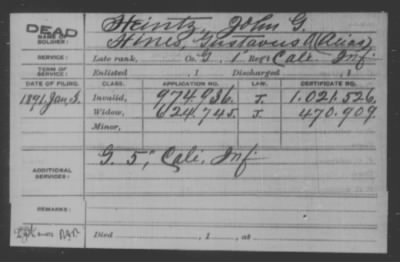 DEAD
NAME OF SOLDIER:
Heintz, John G.
Hines, Gustavus A (Alias)
SERVICE:
Late rank, Co. G. 1" Reg't Cali. Inf.
TERM OF SERVICE:
Enlisted , 1 Discharged , 1
DATE OF FILING. CLASS. APPLICATION NO. LAW. CERTIFICATE NO.
1891, Jan. 5. Invalid, 974936. J. 1.021.526.
Widow, 624.745. J. 470.909.
Minor,
ADDITIONAL SERVICES:
G. 5", Cali. Inf.
REMARKS:
Died , 1 , at